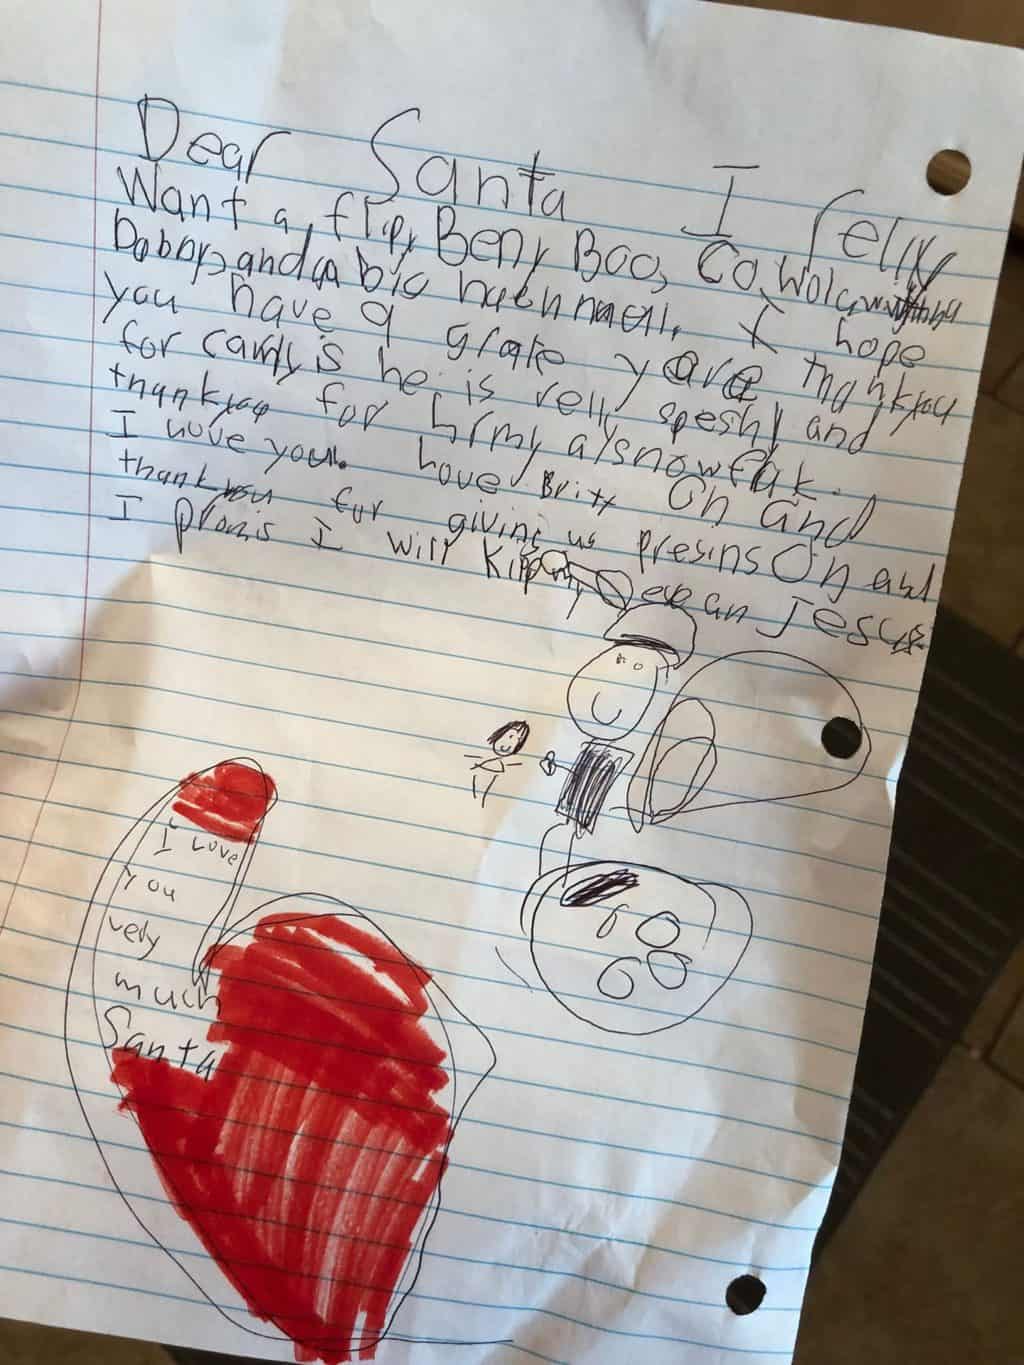 Dear Santa I relly
Want a flipy Beny Boo, Co,
and a bic I hope
you have a grate yare thankyou
for is he is relly speshl and
thankyou for a/snowflak.
I love you. Love Brity On and
thankyou for giving us presins On and
I promis I will Kip an Jesus
I Love
you
very
much
Santa